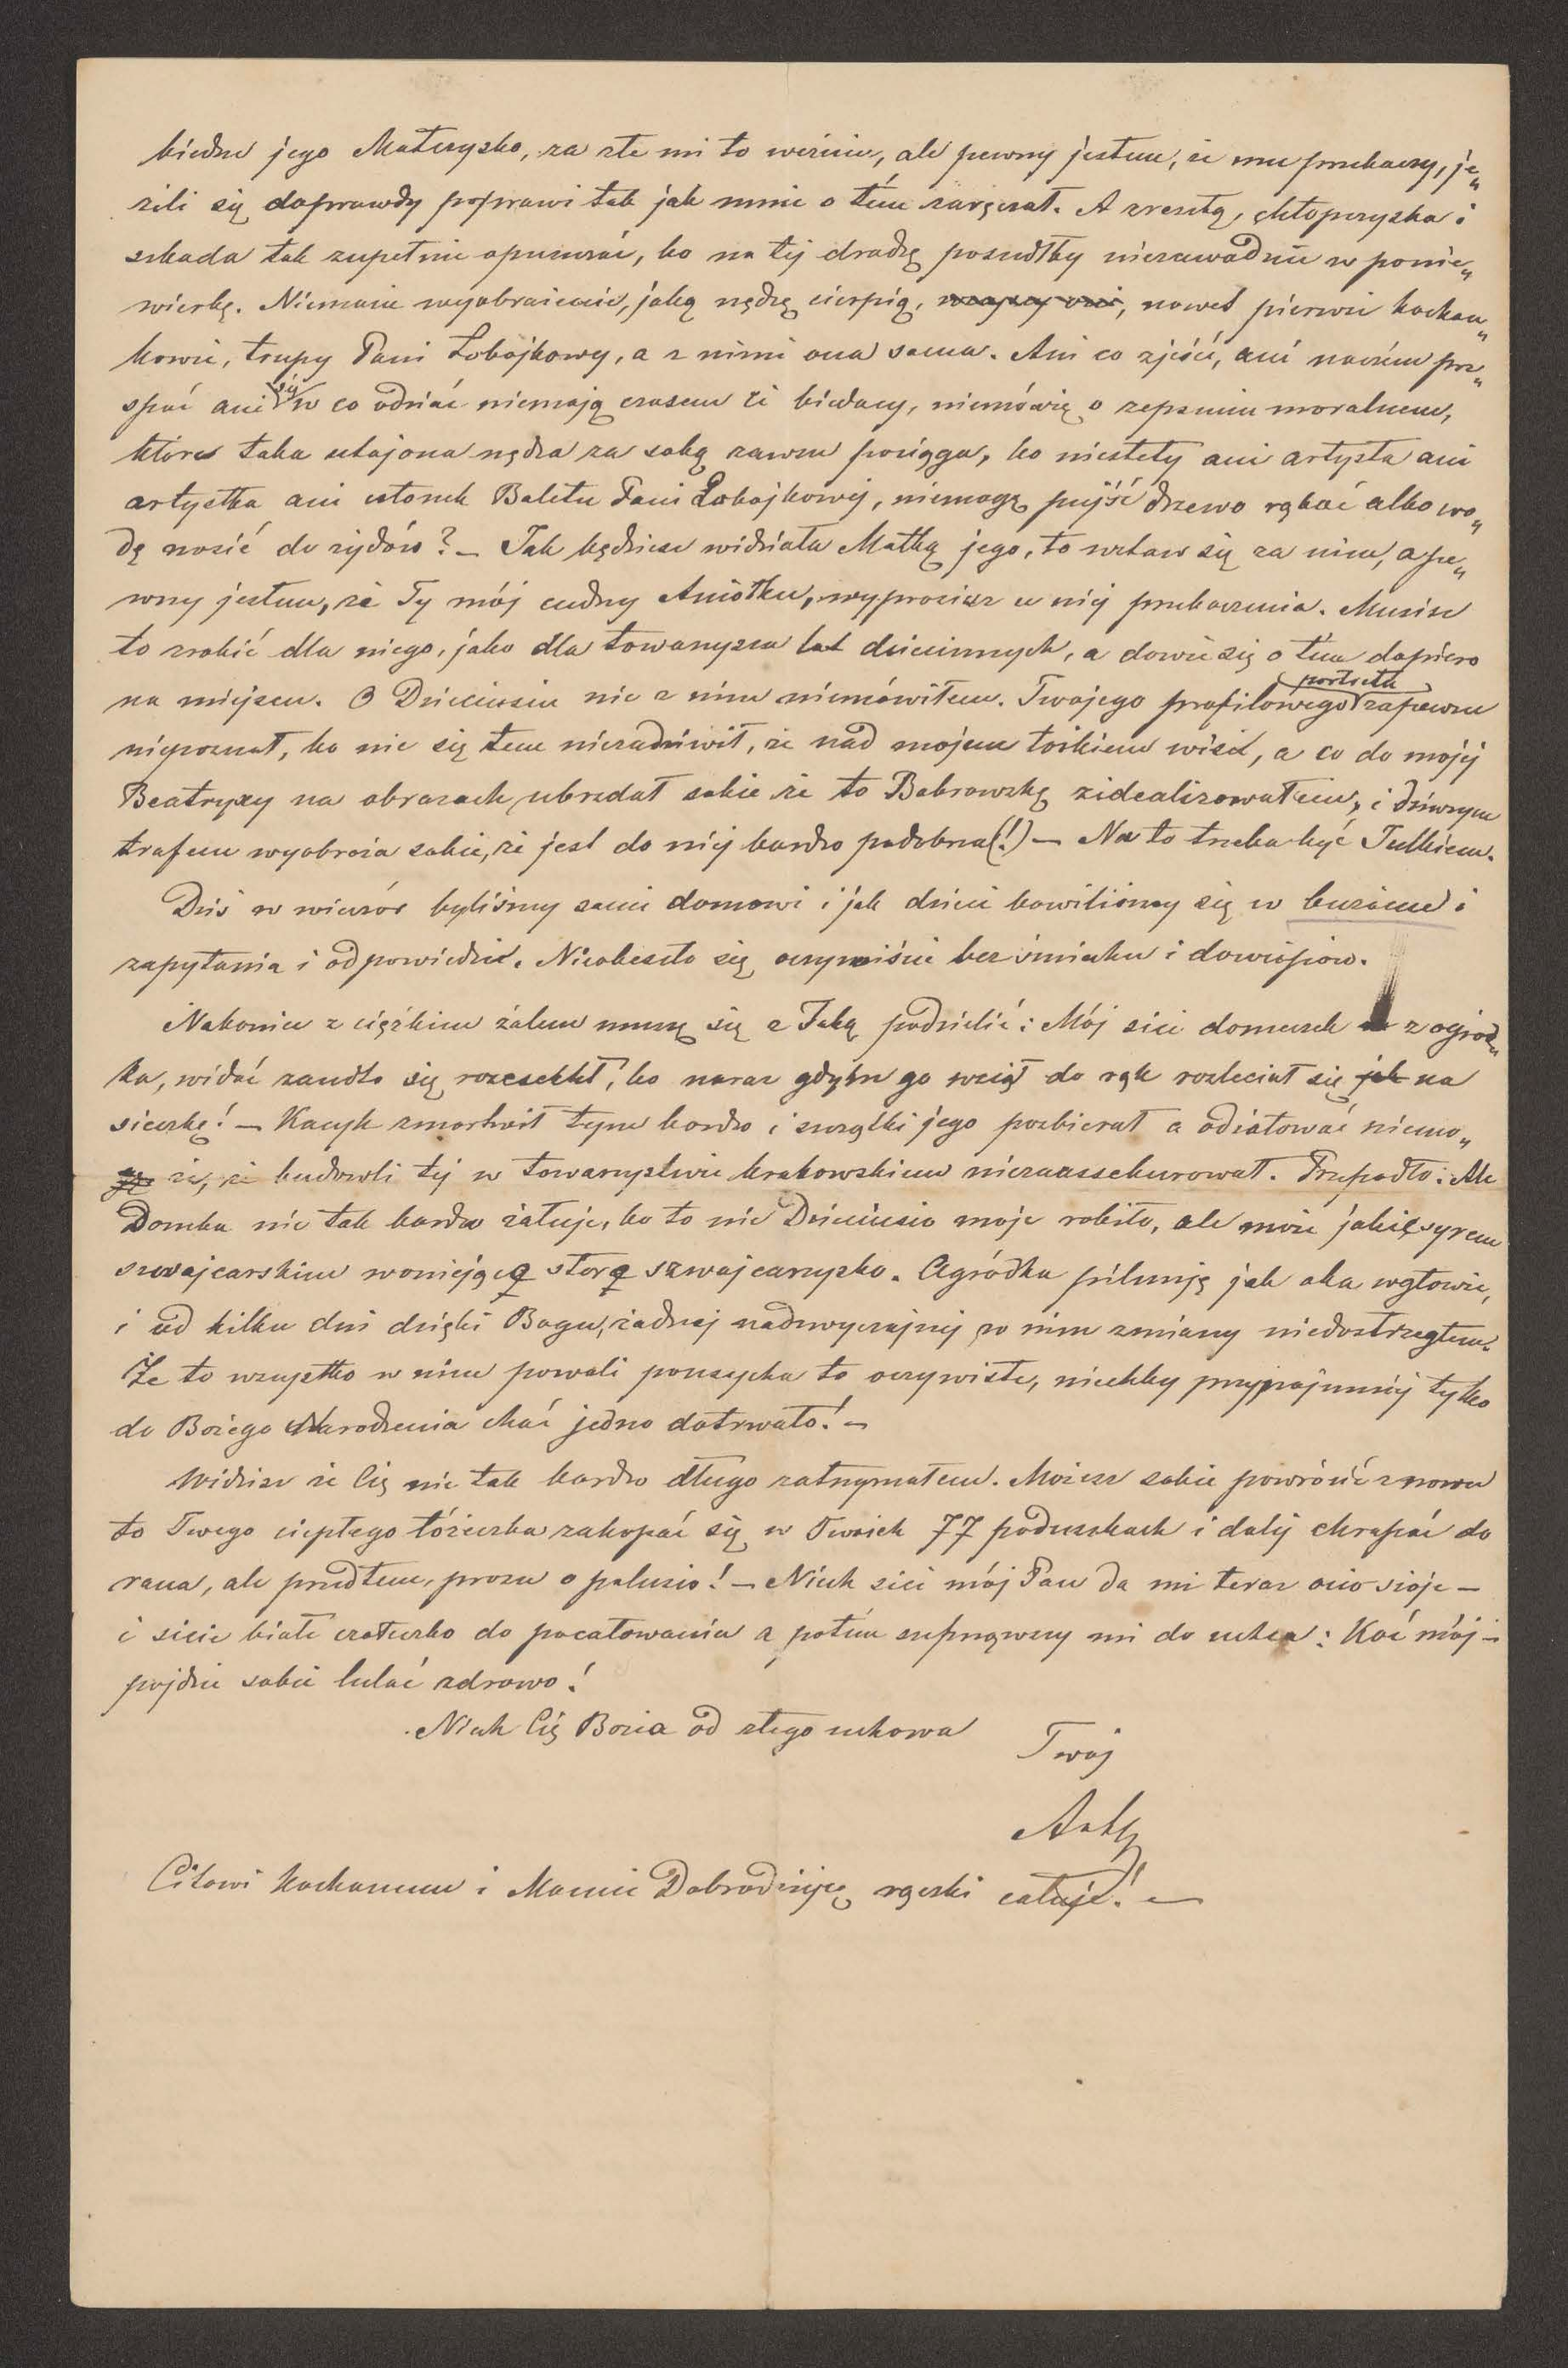 biedne jego Matczysko, za złe mi to weźmie, ale pewny jestem, że mu przebaczy, je„
żeli się doprawdy poprawi tak jak mnie o tém zaręczał. A zresztą, chłopczyska i
szkoda tak zupełnie opuszczać, bo na téj drodzę poszedłby niezawodnie w ponie„
wierkę. Niemacie wyobrażenia, jaką nędzę cierpią, wszyscy oni, nawet pierwsi kochan„
kowie, trupy Pani Łobojkowy, a z nimi ona sama. Ani co zjeść, ani naczém prze„
spać ani się w co odziać niemają czasem ci biedacy, niemówię o zepsuciu moralnem,
które taka utajona nędza za sobą zawsze pociąga, bo niestety ani artysta ani
artystka ani członek Baletu Pani Łobojkowéj, niemogą pujść drzewo rąbać albo wo„
dę nosić do żydów? – Jak będziesz widziała Matkę jego, to wstaw się za nim, a pe„
wny jestem, że Ty mój cudny Aniołku, wyprosisz u niéj przebaczenia. Musisz
to zrobić dla niego, jako dla towarzysza lat dziecinnych, a dowie się o tém dopiero
na miejscu. O Dzieciusiu nic z nim niemówiłem. Twojego profilowego portretu zapewne
niepoznał, bo nic się tem niezadziwił, że nad mojem łóżkiem wisi, a co do mojéj
Beatryxy na obrazach ubrzdał sobie że to Bobrowską zidealizowałem, i dziwnym
trafem wyobraża sobie, że jest do niéj bardzo podobna(!) – Na to trzeba być Tulkiem.
Dziś w wieczór byliśmy sami domowi i jak dzieci bawiliśmy się w buzime i
zapytania i odpowiedzie. Nieobeszło się oczywiście bez śmiechu i dowcipów.
Nakoniec z ciężkim żalem muszę się z Tobą podzielić: Mój sici domeczek z ogród„
ka, widać zandto się rozesechł, bo naraz gdybm go wziął do rąk rozleciał się jak na
sieczkę! – Kacyk zmartwił tym bardzo i szczątki jego pozbierał a odżałować niemo„
że, że budowli téj w towarzystwie krakowskiem niezaassekurował. Przepadło: Ale
Domku nie tak bardzo żałuję, bo to nie Dzieciusio moje robiło, ale może jakieś syrem
szwajcarskim woniejącą starą szwajcarzysko. Ogródka pilnuję jak oka wgłowie,
i od kilku dni dzięki Bogu, żadnéj nadzwyczajnéj w nim zmiany niedostrzegłem.
Że to wszystko w nim powoli pousycha to oczywiste, niechby przynajmniéj tylko
do Bożego Narodzenia choć jedno dotrwało! –
Widzisz że Cię nie tak bardzo długo zatrzymałem. Możesz sobie powrócić znowu
to Twego ciepłego łóżeczka zakopać się w Twoich 77 poduszkach i daléj chrapać do
rana, ale przedtem, proszę o palusio! – Niech sici mój Pan da mi teraz ocio sioje –
i sicie białe czołeczko do pocałowania a potém szepnąwszy mi do uchea: Koć mój –
pojdzie sobie lulać zdrowo!
Niech Cię Bozia od złego uchowa
Twój
Artg
Citowi kochanemu i Mamie Dobrodziéjcę rączki całuję! –